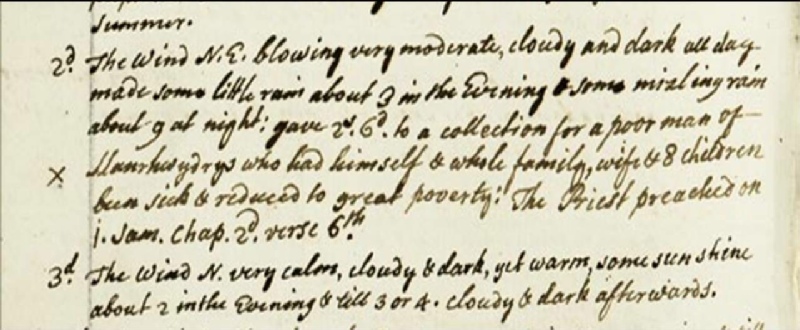 summer.
2d. The Wind N.E. blowing very moderate, cloudy and dark all day
made some little rain about 3 in the Evening & some mizling rain
about 9 at night; gave 2s. 6d. to a collection for a poor man of
x Llanrhwydrys who had himself & whole family, wife & 8 children
been sick & reduced to great poverty: The Priest preached on
1. Sam. Chap. 2d. verse 6th.
3d. The Wind N. very calm, cloudy & dark, yet warm, some sun shine
about 2 in the Evening & till 3 or 4. cloudy & dark afterwards.